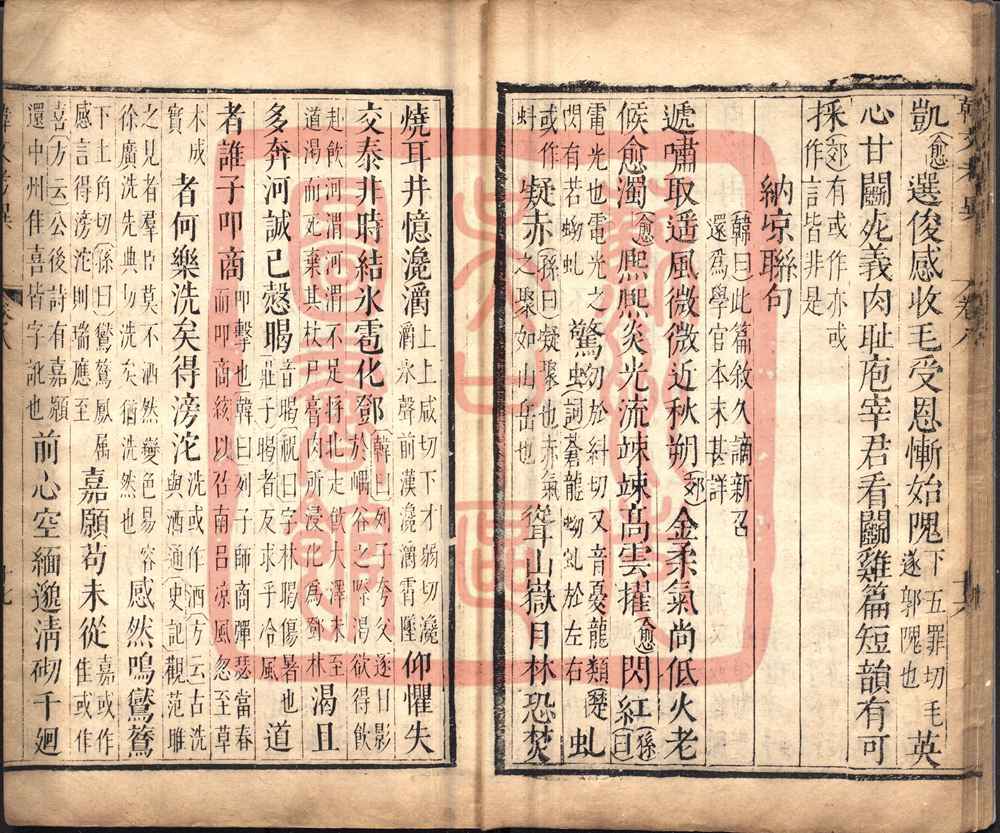 凱愈選俊感收毛受恩慚始隗下五罪切毛英遂郭隗也
心甘鬭死義肉耻庖宰君看鬭雞篇短韻有可
採郊有或作亦或作言皆非是
納凉聯句
韓曰此篇敘久謫新召還爲學官本末甚詳
遞嘯取遥風微微近秋朔郊金柔氣尚低火老
候愈濁愈熙熙炎光流竦竦高雲擢愈閃紅孫曰
電光也電光之閃有若蚴虬驚蚴於糾切又音憂龍類虬
或作蚪凝赤孫曰凝聚也赤氣之聚如山岳也聳山嶽目林恐焚
燒耳井憶瀺灂上士咸切下才弱切瀺灂水聲前漢瀺灂霄墜仰懼失
交泰非時結氷雹化鄧韓曰列子夸父逐日影於嵎谷之際渴欲得飲
赴飲河渭河渭不足將北走飲大澤未至道渴而死棄其杖尸膏肉所浸化爲鄧林渴且
多奔河誠已愨暍音暍祝曰字林暍傷暑也莊子暍者反求乎冷風道
者誰子叩商叩擊也韓曰列子師商彈瑟當春而叩商絃以召南呂凉風忽至草
木成實者何樂洗矣得滂沱洗或作洒方云古洗與洒通史記觀范雎
之見者羣臣莫不洒然變色易容徐廣洗先典切洗矣猶洗然也感然鳴鸑鷟
下士角切孫曰鸑鷟鳳屬感言得滂沱則瑞應至嘉願苟未從嘉或作佳或作
喜方云公後詩有嘉願還中州佳喜皆字訛也前心空緬邈淸砌千廻